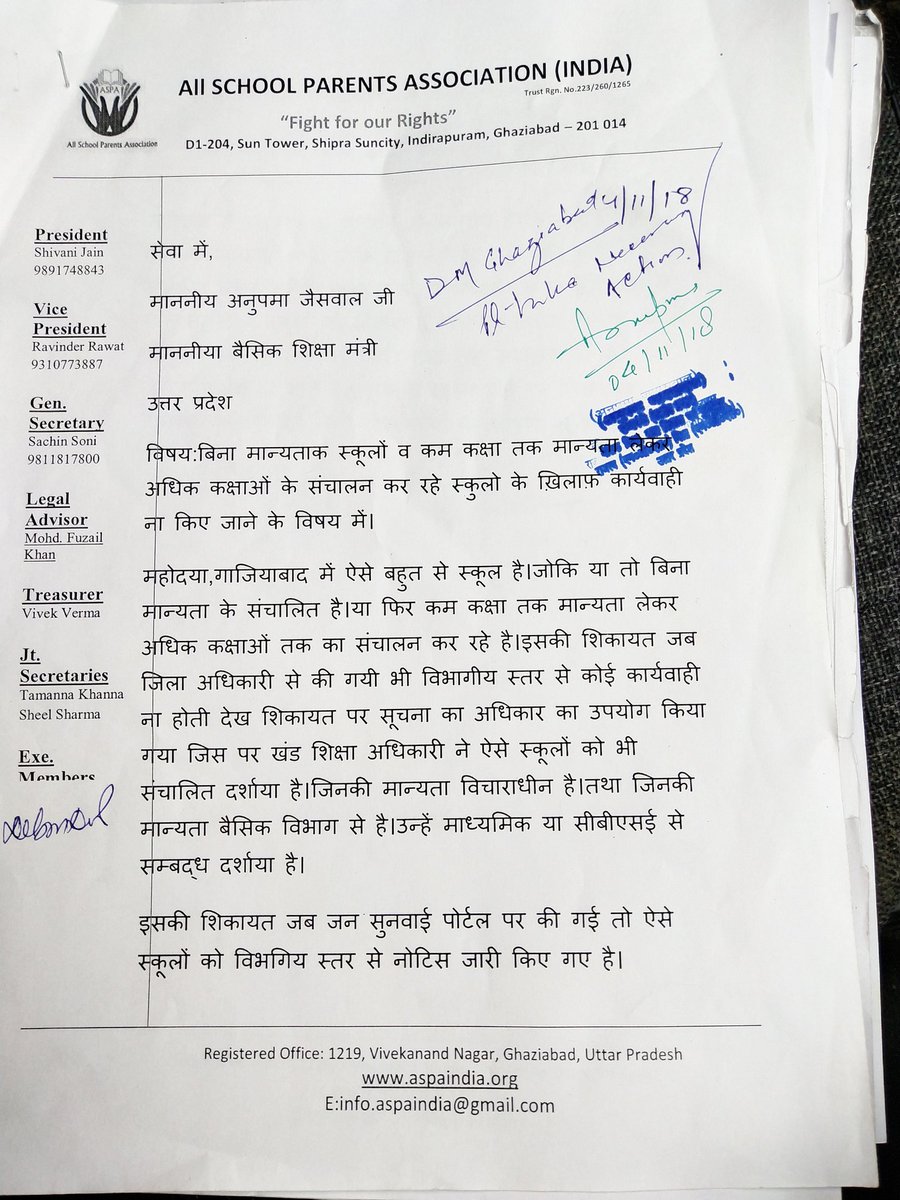 ASPA
All School Parents Association
All SCHOOL PARENTS ASSOCIATION (INDIA)
Trust Rgn. No.223/260/1265
“Fight for our Rights”
D1-204, Sun Tower, Shipra Suncity, Indirapuram, Ghaziabad – 201 014
DM Ghaziabad 4/11/18
Pl take Necessary
Action
04/11/18
President
Shivani Jain
9891748843
Vice
President
Ravinder Rawat
9310773887
Gen.
Secretary
Sachin Soni
9811817800
Legal
Advisor
Mohd. Fuzail
Khan
Treasurer
Vivek Verma
Jt.
Secretaries
Tamanna Khanna
Sheel Sharma
Exe.
Members
सेवा में,
माननीय अनुपमा जैसवाल जी
माननीया बैसिक शिक्षा मंत्री
उत्तर प्रदेश
विषय:बिना मान्यताक स्कूलों व कम कक्षा तक मान्यता लेकर
अधिक कक्षाओं के संचालन कर रहे स्कुलो के ख़िलाफ़ कार्यवाही
ना किए जाने के विषय में।
महोदया,गाजियाबाद में ऐसे बहुत से स्कूल है।जोकि या तो बिना
मान्यता के संचालित है।या फिर कम कक्षा तक मान्यता लेकर
अधिक कक्षाओं तक का संचालन कर रहे है।इसकी शिकायत जब
जिला अधिकारी से की गयी भी विभागीय स्तर से कोई कार्यवाही
ना होती देख शिकायत पर सूचना का अधिकार का उपयोग किया
गया जिस पर खंड शिक्षा अधिकारी ने ऐसे स्कूलों को भी
संचालित दर्शाया है।जिनकी मान्यता विचाराधीन है।तथा जिनकी
मान्यता बैसिक विभाग से है।उन्हें माध्यमिक या सीबीएसई से
सम्बद्ध दर्शाया है।
इसकी शिकायत जब जन सुनवाई पोर्टल पर की गई तो ऐसे
स्कूलों को विभगिय स्तर से नोटिस जारी किए गए है।
Registered Office: 1219, Vivekanand Nagar, Ghaziabad, Uttar Pradesh
www.aspaindia.org
E:info.aspaindia@gmail.com